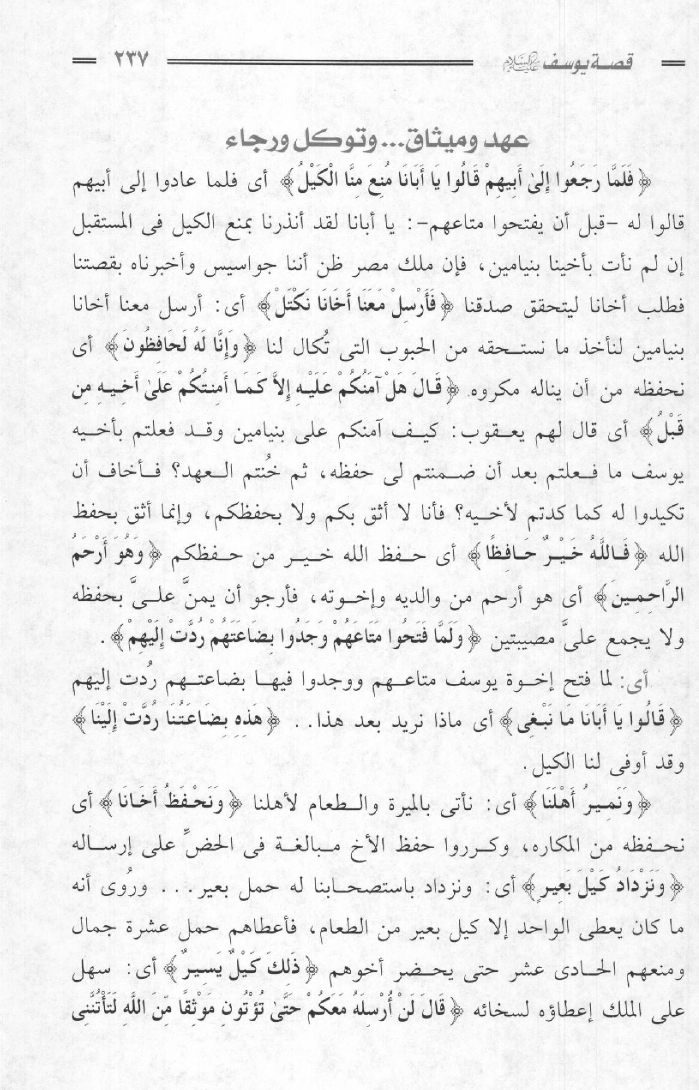 قصة يوسف عليه السلام ٢٣٧
عهد وميثاق... وتوكل ورجاء
﴿ فَلَمَّا رَجَعُوا إِلَىٰ أَبِيهِمْ قَالُوا يَا أَبَانَا مُنِعَ مِنَّا الْكَيْلُ ﴾ أى فلما عادوا إلى أبيهم
قالوا له -قبل أن يفتحوا متاعهم-: يا أبانا لقد أنذرنا بمنع الكيل فى المستقبل
إن لم نأت بأخينا بنيامين، فإن ملك مصر ظن أننا جواسيس وأخبرناه بقصتنا
فطلب أخانا ليتحقق صدقنا ﴿ فَأَرْسِلْ مَعَنَا أَخَانَا نَكْتَلْ ﴾ أى: أرسل معنا أخانا
بنيامين لنأخذ ما نستحقه من الحبوب التى تُكال لنا ﴿ وَإِنَّا لَهُ لَحَافِظُونَ ﴾ أى
نحفظه من أن يناله مكروه ﴿ قَالَ هَلْ آمَنُكُمْ عَلَيْهِ إِلاَّ كَمَا أَمِنتُكُمْ عَلَىٰ أَخِيهِ مِن
قَبْلُ ﴾ أى قال لهم يعقوب: كيف آمنكم على بنيامين وقد فعلتم بأخيه
يوسف ما فعلتم بعد أن ضمنتم لى حفظه، ثم خُنتم العهد؟ فأخاف أن
تكيدوا له كما كدتم لأخيه؟ فأنا لا أثق بكم ولا بحفظكم، وإنما أثق بحفظ
الله ﴿ فَاللَّهُ خَيْرٌ حَافِظًا ﴾ أى حفظ الله خير من حفظكم ﴿ وَهُوَ أَرْحَمُ
الرَّاحِمِينَ ﴾ أى هو أرحم من والديه وإخوته، فأرجو أن يمنَّ علىَّ بحفظه
ولا يجمع علىَّ مصيبتين ﴿ وَلَمَّا فَتَحُوا مَتَاعَهُمْ وَجَدُوا بِضَاعَتَهُمْ رُدَّتْ إِلَيْهِمْ ﴾ .
أى: لما فتح إخوة يوسف متاعهم ووجدوا فيها بضاعتهم رُدت إليهم
﴿ قَالُوا يَا أَبَانَا مَا نَبْغِى ﴾ أى ماذا نريد بعد هذا.. ﴿ هَذِهِ بِضَاعَتُنَا رُدَّتْ إِلَيْنَا ﴾
وقد أوفى لنا الكيل.
﴿ وَنَمِيرُ أَهْلَنَا ﴾ أى: نأتى بالميرة والطعام لأهلنا ﴿ وَنَحْفَظُ أَخَانَا ﴾ أى
نحفظه من المكاره، وكرروا حفظ الأخ مبالغة فى الحضِّ على إرساله
﴿ وَنَزْدَادُ كَيْلَ بَعِيرٍ ﴾ أى: ونزداد باستصحابنا له حمل بعير... ورُوى أنه
ما كان يعطى الواحد إلا كيل بعير من الطعام، فأعطاهم حمل عشرة جمال
ومنعهم الحادى عشر حتى يحضر أخوهم ﴿ ذَلِكَ كَيْلٌ يَسِيرٌ ﴾ أى: سهل
على الملك إعطاؤه لسخائه ﴿ قَالَ لَنْ أُرْسِلَهُ مَعَكُمْ حَتَّىٰ تُؤْتُونِ مَوْثِقًا مِّنَ اللَّهِ لَتَأْتُنَّنِى